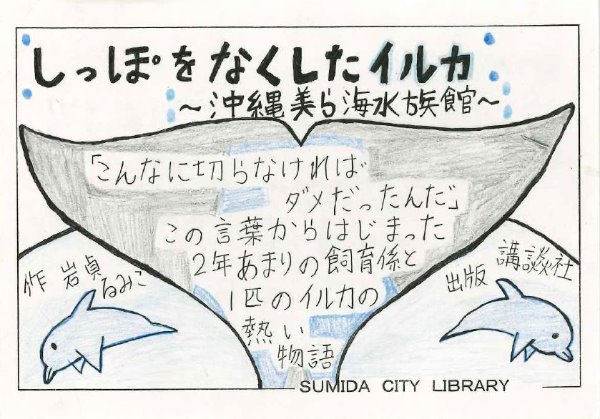 しっぽをなくしたイルカ
～沖縄美ら海水族館～
「こんなに切らなければ
ダメだったんだ」
この言葉からはじまった
2年あまりの飼育係と
1匹のイルカの
熱い
物語
作 岩貞
るみこ
出版 講談社
SUMIDA CITY LIBRARY